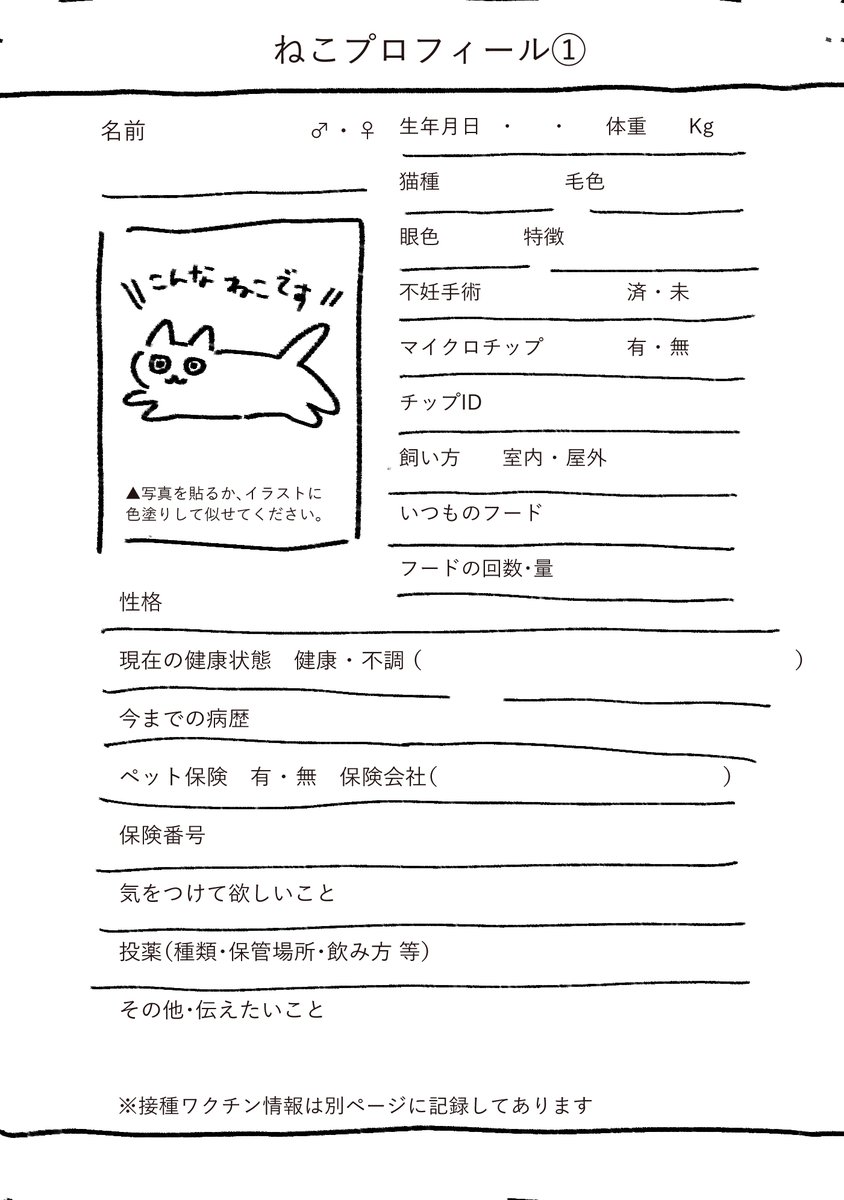 ねこプロフィール①
名前 ♂・♀
生年月日 ・ ・ 体重 Kg
猫種 毛色
眼色 特徴
不妊手術 済・未
マイクロチップ 有・無
チップID
飼い方 室内・屋外
いつものフード
フードの回数・量
\\こんな ねこです//
▲写真を貼るか、イラストに
色塗りして似せてください。
性格
現在の健康状態 健康・不調( )
今までの病歴
ペット保険 有・無 保険会社( )
保険番号
気をつけて欲しいこと
投薬(種類・保管場所・飲み方 等)
その他・伝えたいこと
※接種ワクチン情報は別ページに記録してあります